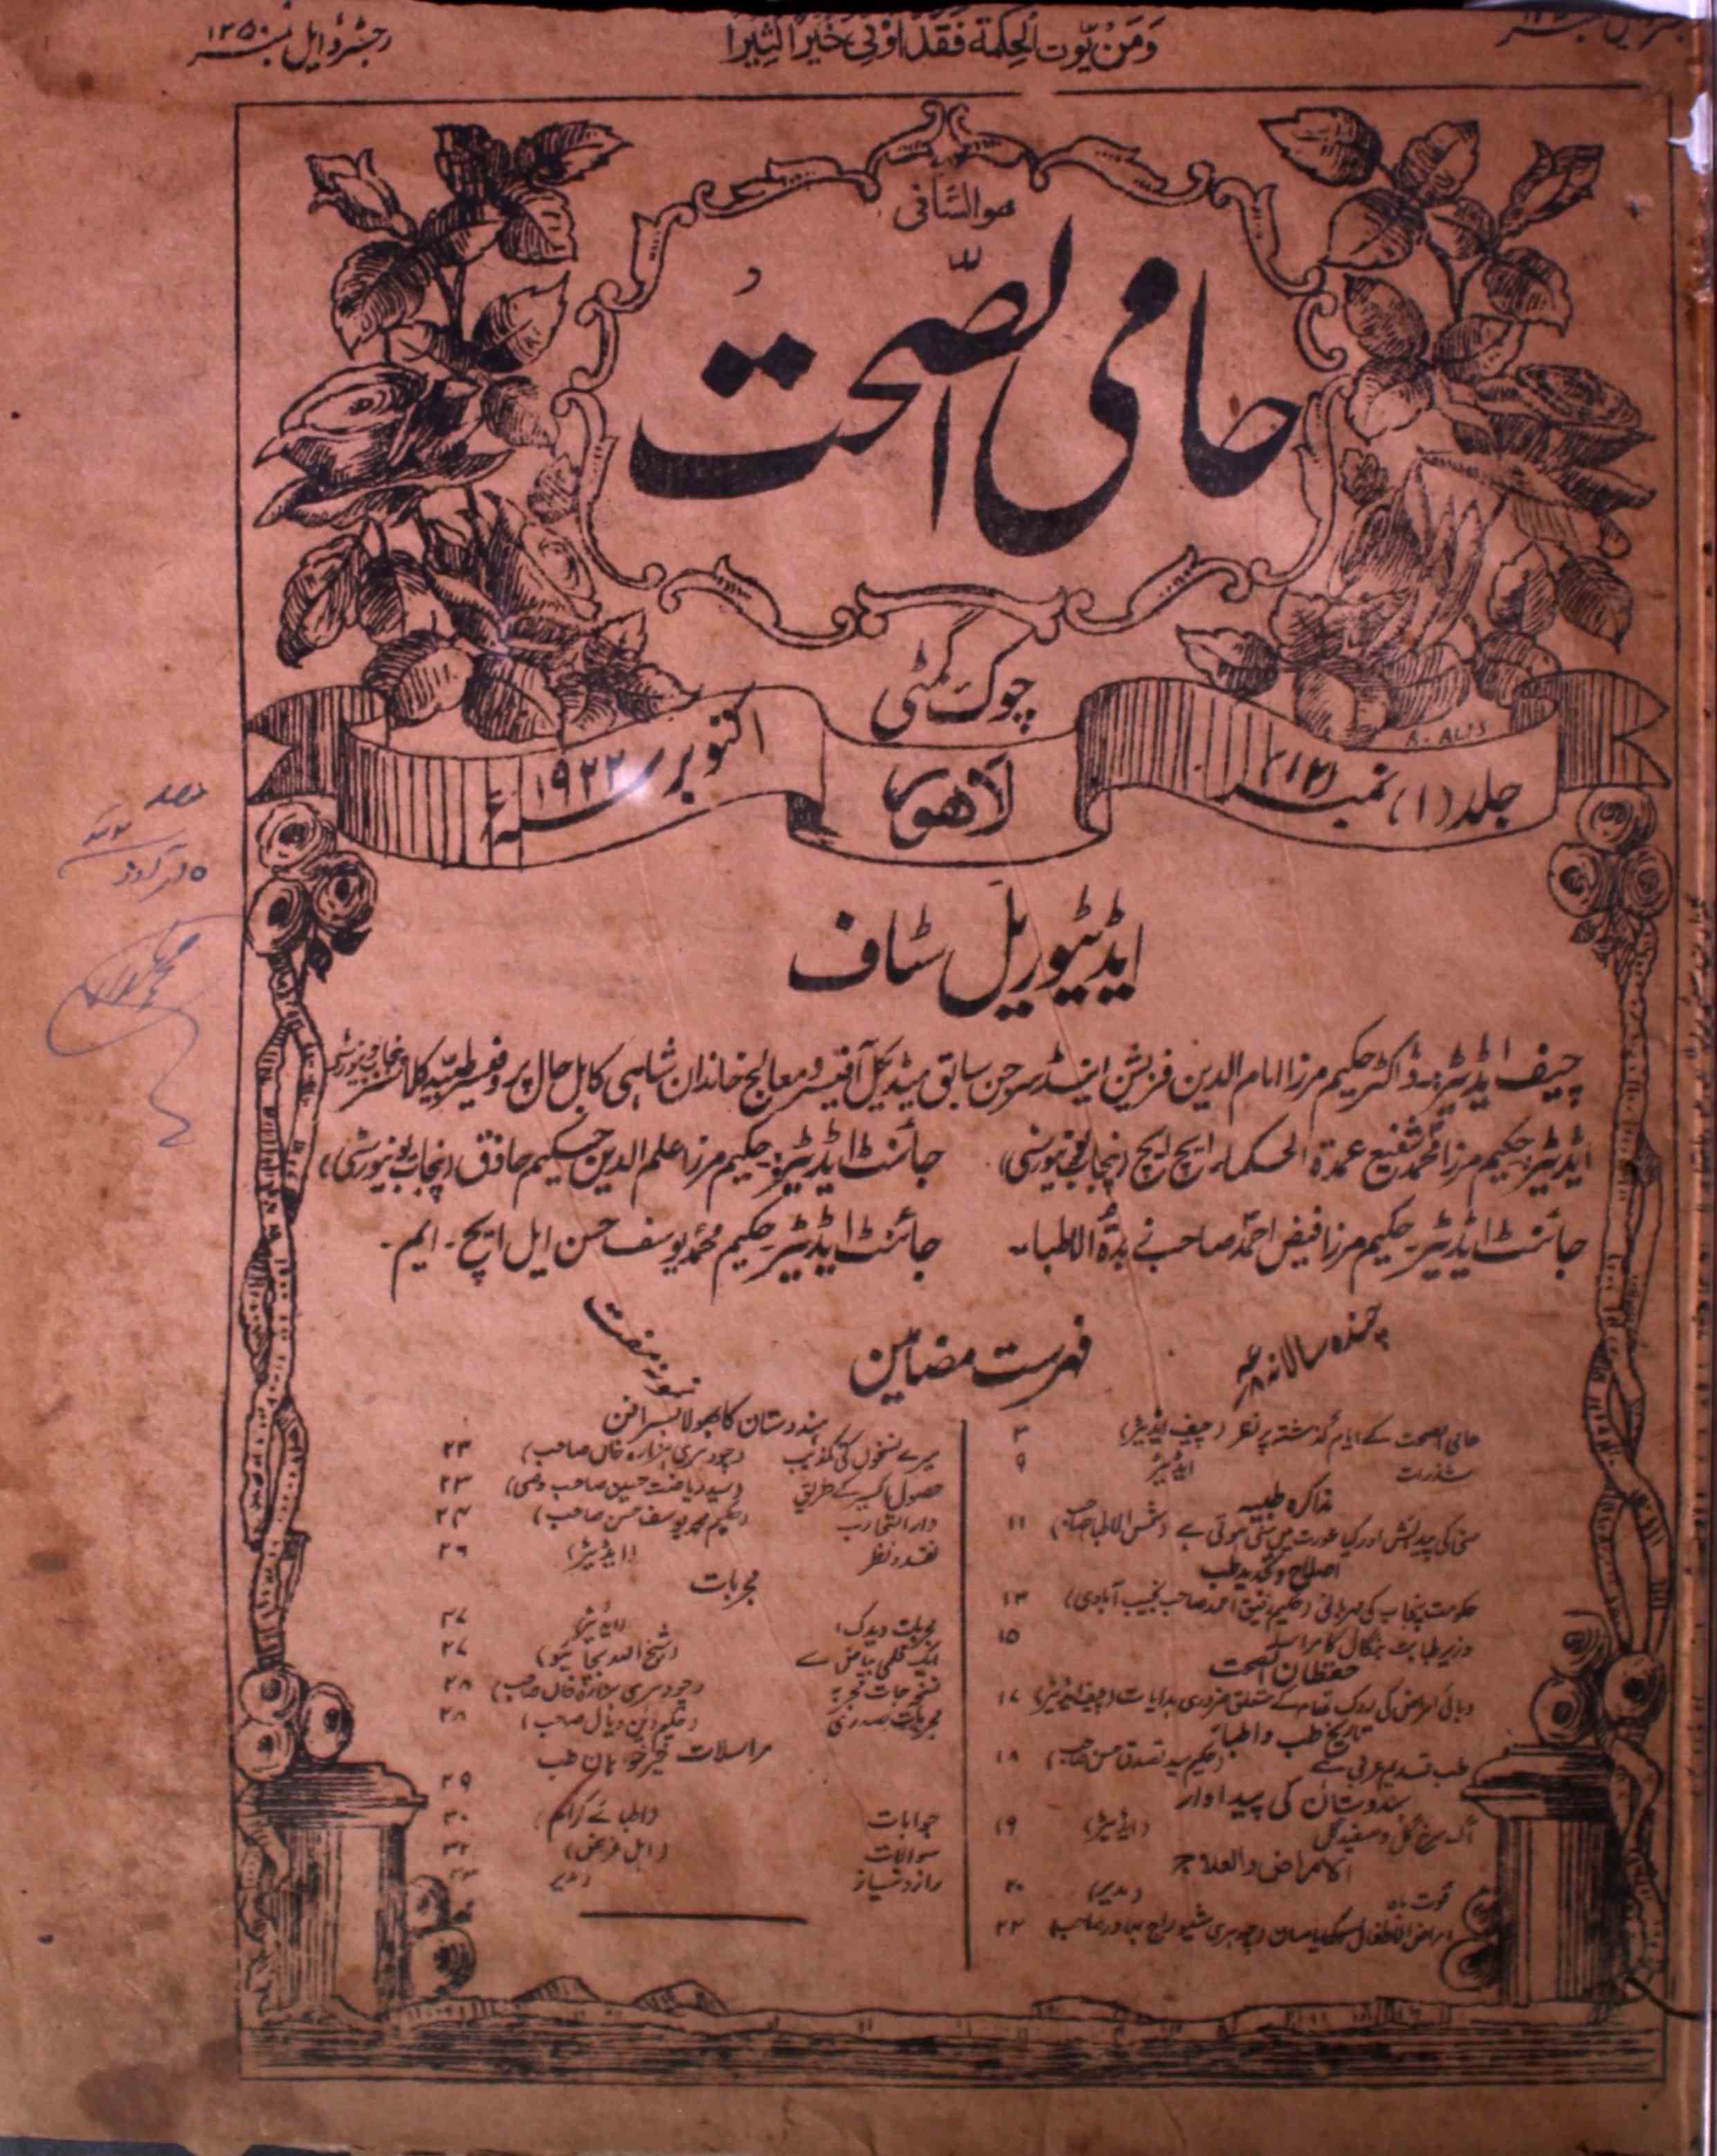 رجسٹرڈ ایل نمبر ۱۲۵۰
وَمَنْ یُّوتَ الْحِکمۃَ فَقَدْ اُوتِیَ خَیْرًا کَثِیْرًا
ھوالشافی
حامی الصّحت
چوک مٹی
لاھور
جلد (۱) نمبر
اکتوبر ۱۹۲۲ء
ایڈیٹوریل سٹاف
چیف ایڈیٹر:۔ ڈاکٹر حکیم مرزا امام الدین فزیشن اینڈ سرجن سابق میڈیکل آفیسر و معالج خاندان شاہی کابل حال پروفیسر طبیہ کلاسز پنجاب یونیورسٹی
ایڈیٹر:۔ حکیم مرزا محمد شفیع عمدۃ الحکماء ایچ ایچ (پنجاب یونیورسٹی)
جائنٹ ایڈیٹر:۔ حکیم مرزا علم الدین حکیم حاذق (پنجاب یونیورسٹی)
جائنٹ ایڈیٹر۔ حکیم مرزا فیض احمد صاحب زبدۃ الاطباء۔
جائنٹ ایڈیٹر۔ حکیم محمد یوسف حسن ایل ایچ۔ ایم۔
چندہ سالانہ
فہرست مضامین
نمونہ مفت
حامی الصحت کے ایام گذشتہ پر نظر (چیف ایڈیٹر) ۳
شذرات ایڈیٹر ۹
مذاکرہ طبیہ
منی کی پیدائش اور کیا عورت میں منی ہوتی ہے (شمس الاطبا صاحب) ۱۱
اصلاح و تجدید طب
حکومت پنجاب کی مہربانی (حکیم عتیق احمد صاحب نجیب آبادی) ۱۳
وزیر طبابت بنگال کا مراسلہ ۱۵
حفظان الصحت
وبائی امراض کی روک تھام کے متعلق ضروری ہدایات (چیف ایڈیٹر) ۱۷
تاریخ طب و اطباء
طب قدیم عربی کے (حکیم سید تصدق حسن صاحب) ۱۸
ہندوستان کی پیداوار
آک سرخ گل و سفید گل (ایڈیٹر) ۱۹
الامراض والعلاج
قوت باہ (مدیر) ۲۰
امراض الاطفال (چوہدری شیو راج بہادر صاحب) ۲۲
ہندوستان کا بھولا بسرا فن
میرے نسخوں کی تکذیب (چودہری ہزارہ خاں صاحب) ۲۳
حصول اکسیر کے طریق (سید ریاضت حسین صاحب وصی) ۲۳
دارالتجارب (حکیم محمد یوسف حسن صاحب) ۲۴
نقد و نظر (ایڈیٹر) ۲۶
مجربات
مجربات ویدک (ایڈیٹر) ۲۷
ایک قلمی بیاض سے (شیخ اللہ بچائیو) ۲۷
نسخہ جات مجربہ (چودہری ہزارہ خاں صاحب) ۲۸
مجربات صدری (حکیم دین دیال صاحب) ۲۸
مراسلات خیر خواہان طب ۲۹
جوابات (اطبائے کرام) ۳۰
سوالات (اہل غرض) ۳۲
راز و نیاز مدیر